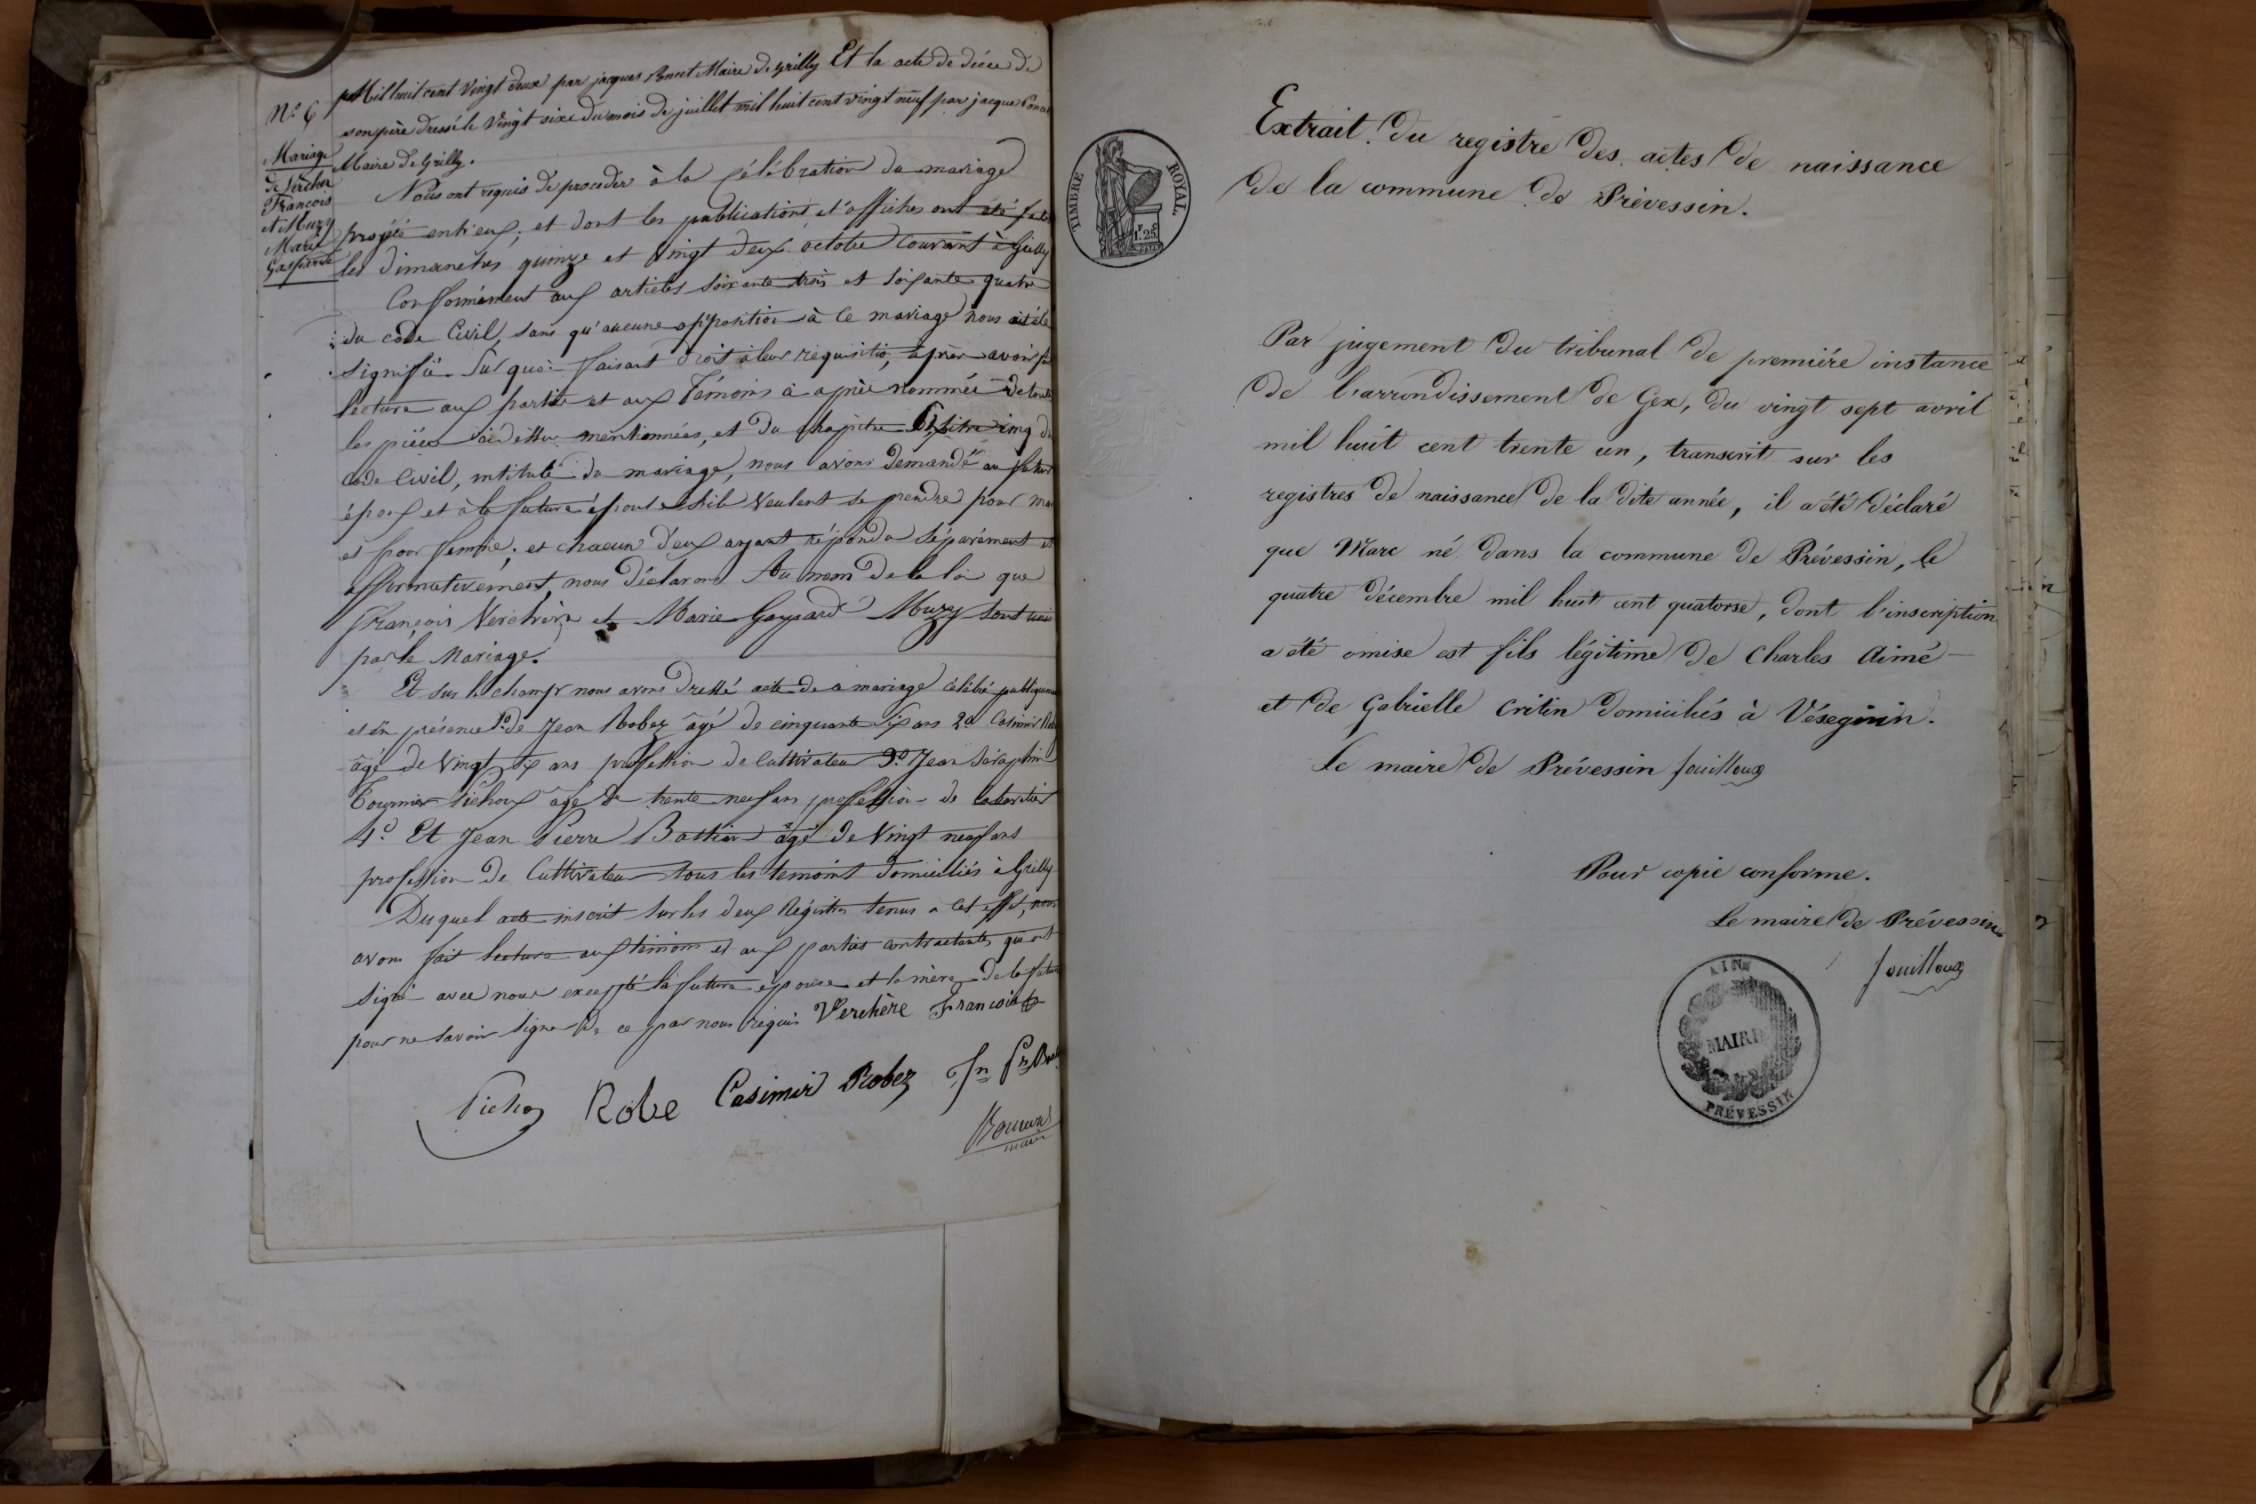 Mil huit cent Vingt deux par jacques Poncet Maire de Grilly Et la acte de décès de
son père dressé le Vingt sixe du mois de juillet mil huit cent vingt neuf par jacque
Maire de Grilly.
N.º 6
Mariage
de Verchère
François
et Muzy
Marie
Gasparde
Nous ont requis de proceder à la célébration du mariage
projeté entr'eux; et dont les publications et affiches ont été
les dimanches quinze et Vingt deux octobre courant à Grilly
Conformément aux articles soixante trois et soixante quatre
du code Civil, sans qu'aucune opposition à ce mariage nous ait été
signifié. Sur quoi faisant droit à leur requisitio, après avoir
lecture aux parties et aux Témoins ci après nommés de toutes
les pièces ci dessus mentionnées, et du chapitre titre cinq du
Code Civil, intitulé du mariage, nous avons demandé au futur
époux et à la future épouse s'ils veulent se prendre pour
et pour femme; et chacun d'eux ayant répondu séparément et
affirmativement, nous déclarons Au nom de la loi que
François Verchère et Marie Gaspard Muzy sont unis
par le Mariage.
Et sur le champ nous avons dressé acte de ce mariage célébré
et en présence 1.º de Jean Robez âgé de cinquante six ans 2.º Casimir
âgé de Vingt six ans profession de Cultivateur 3.º Jean Séraphin
Fournier Pichoux âgé de trente neuf ans profession de
4.º Et Jean Pierre Bastian âgé de Vingt neuf ans
profession de Cultivateur tous les temoins domiciliés à Grilly
Duquel acte inscrit sur les deux Régistres tenus a cet effet, nous
avons fait lecture aux témoins et aux parties contractantes qui ont
signé avec nous excepté la future épouse et la mère de la
pour ne savoir signer de ce par nous requis Verchère François
Robe Casimir Robez Jn
maire
TIMBRE ROYAL
1. 25
Extrait du registre des actes de naissance
de la commune de Prévessin.
Par jugement du tribunal de première instance
de l'arrondissement de Gex, du vingt sept avril
mil huit cent trente un, transcrit sur les
registres de naissance de la dite année, il a été déclaré
que Marc né dans la commune de Prévessin, le
quatre décembre mil huit cent quatorse, dont l'inscription
a été omise est fils légitime de Charles Aimé
et de Gabrielle Critin domiciliés à Vésegnin.
Le maire de Prévessin fouilloux
Pour copie conforme.
Le maire de Prévessin
fouilloux
AIN
MAIRIE
PRÉVESSIN